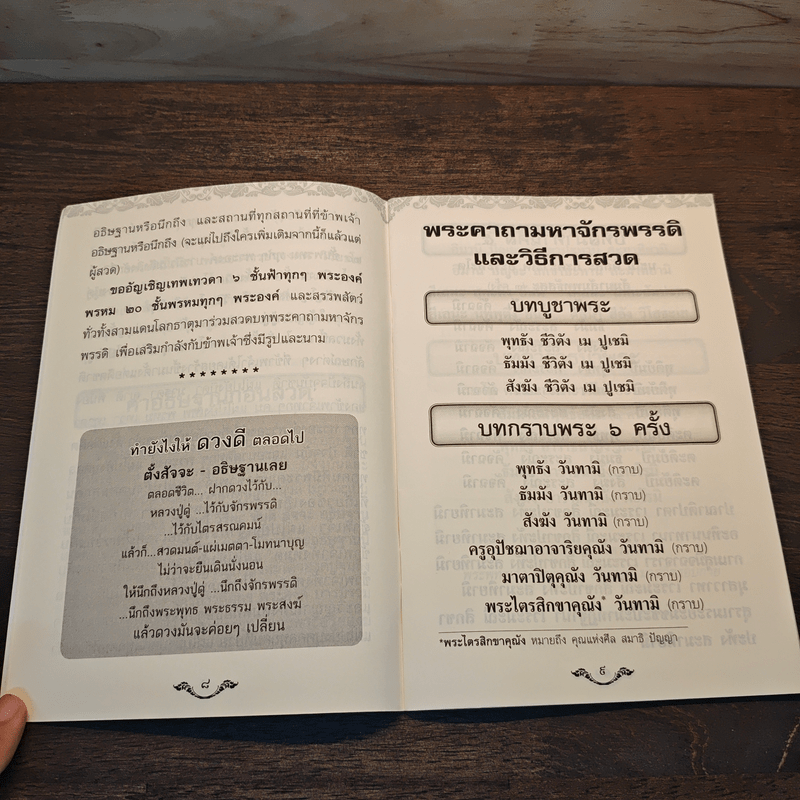 อธิษฐานหรือนึกถึง และสถานที่ทุกสถานที่ที่ข้าพเจ้า
อธิษฐานหรือนึกถึง (จะแผ่ไปถึงใครเพิ่มเติมจากนี้ก็แล้วแต่
ผู้สวด)
ขออัญเชิญเทพเทวดา ๖ ชั้นฟ้าทุกๆ พระองค์
พรหม ๒๐ ชั้นพรหมทุกๆ พระองค์ และสรรพสัตว์
ทั่วทั้งสามแดนโลกธาตุมาร่วมสวดบทพระคาถามหาจักร
พรรดิ เพื่อเสริมกำลังกับข้าพเจ้าซึ่งมีรูปและนาม
********
ทำยังไงให้ ดวงดี ตลอดไป
ตั้งสัจจะ - อธิษฐานเลย
ตลอดชีวิต... ฝากดวงไว้กับ...
หลวงปู่ดู่ ...ไว้กับจักรพรรดิ
...ไว้กับไตรสรณคมน์
แล้วก็...สวดมนต์-แผ่เมตตา-โมทนาบุญ
ไม่ว่าจะยืนเดินนั่งนอน
ให้นึกถึงหลวงปู่ดู่ ...นึกถึงจักรพรรดิ
...นึกถึงพระพุทธ พระธรรม พระสงฆ์
แล้วดวงมันจะค่อยๆ เปลี่ยน
๘
พระคาถามหาจักรพรรดิ
และวิธีการสวด
บทบูชาพระ
พุทธัง ชีวิตัง เม ปูเชมิ
ธัมมัง ชีวิตัง เม ปูเชมิ
สังฆัง ชีวิตัง เม ปูเชมิ
บทกราบพระ ๖ ครั้ง
พุทธัง วันทามิ (กราบ)
ธัมมัง วันทามิ (กราบ)
สังฆัง วันทามิ (กราบ)
ครูอุปัชฌาอาจาริยคุณัง วันทามิ (กราบ)
มาตาปิตุคุณัง วันทามิ (กราบ)
พระไตรสิกขาคุณัง* วันทามิ (กราบ)
*พระไตรสิกขาคุณัง หมายถึง คุณแห่งศีล สมาธิ ปัญญา
๙